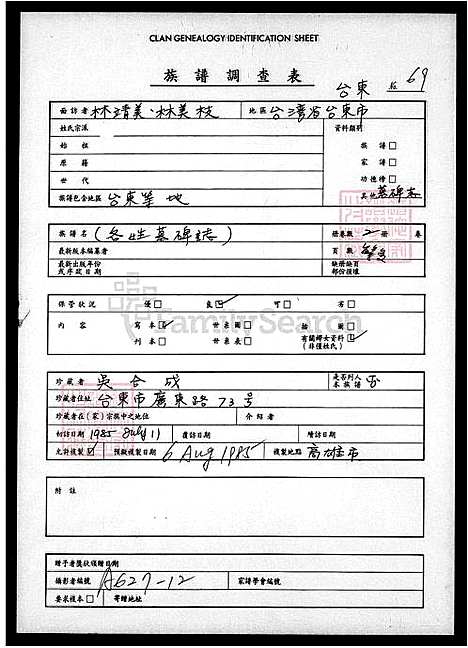 CLAN GENEALOGY IDENTIFICATION SHEET
族譜調查表
台東 69
面訪者 林清美、林美枝 地區 台灣省台東市
姓氏宗派 資料類別
始祖 族譜□
原籍 家譜□
世代 功德榜□
族譜包含地區 台東等地 其他 墓碑志
族譜名 (各姓墓碑誌) 册卷數 2 册 卷
最新版本編纂者 頁數
最新出版年份 缺册缺頁
或序跋日期 部份損壞
保管狀況 優□ 良☑ 可□ 劣□
內容 寫本☑ 世系圖□ 插圖□
刊本□ 世系表□ 有關婦女資料☑
(非僅姓氏)
FamilySearch
珍藏者 吳合成 是否列入
本族譜 否
珍藏者住址 台東市廣東路73號
珍藏者在(家)宗族中之地位 介紹者
初訪日期 1985 July 11 復訪日期 續訪日期
允許複製☑ 預擬複製日期 6 Aug 1985 複製地點 高雄市
附註
贈予者獎狀頒贈日期
攝影者編號 A627-12 家譜學會編號
要求複本□ 寄贈地址